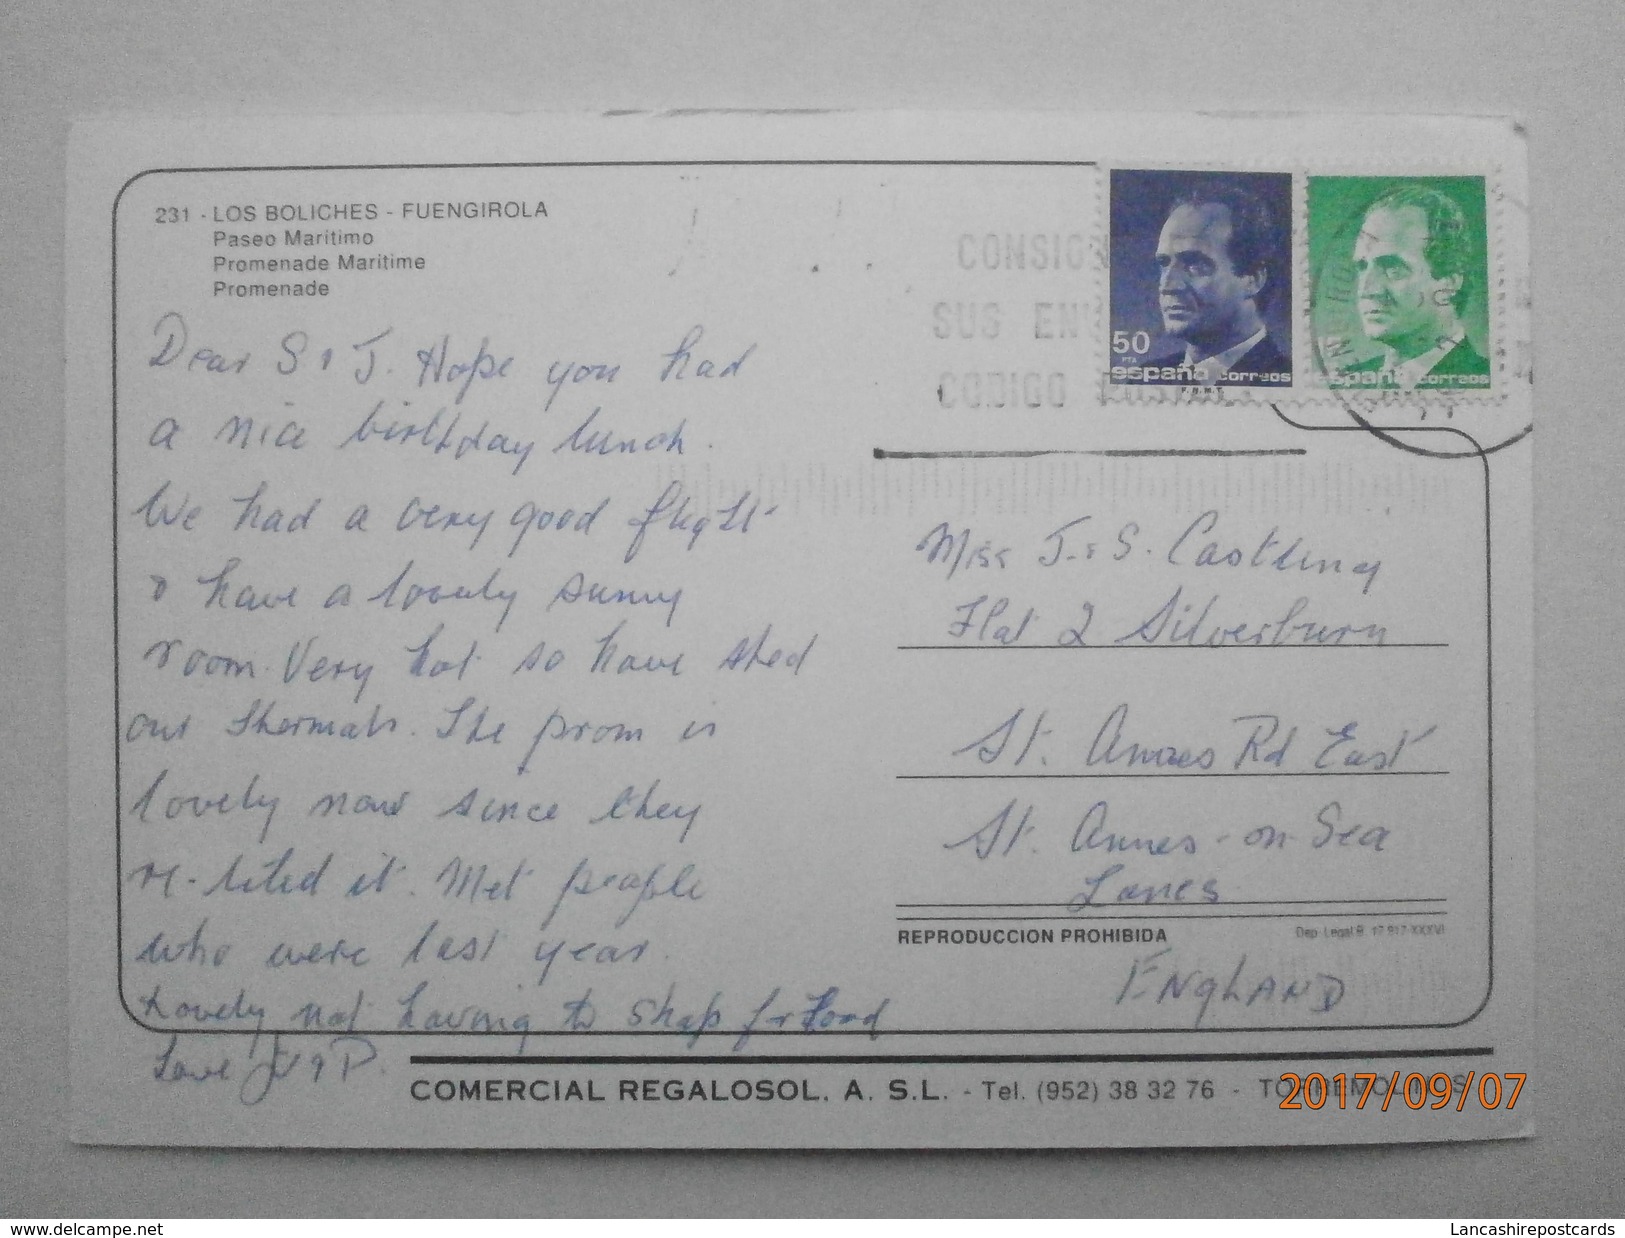 231 - LOS BOLICHES - FUENGIROLA
Paseo Marítimo
Promenade Maritime
Promenade
Dear S & J. Hope you had
a nice birthday lunch.
We had a very good flight
& have a lovely sunny
room. Very hot so have shed
our thermals. The prom is
lovely now since they
re-tiled it. Met people
who were last year.
Lovely not having to shop for food
Love J & P.
CONSIGNE
SUS ENV
CODIGO POSTAL
50
PTA
españa correos
F.N.M.T.
españa correos
Miss J. & S. Castling
Flat 2 Silverburn
St. Annes Rd East
St. Annes-on-Sea
Lancs
REPRODUCCION PROHIBIDA
Dep. Legal B. 17.917-XXXVI
ENGLAND
COMERCIAL REGALOSOL, A. S.L. - Tel. (952) 38 32 76 - TORREMOLINOS
2017/09/07
www.delcampe.net
Lancashirepostcards